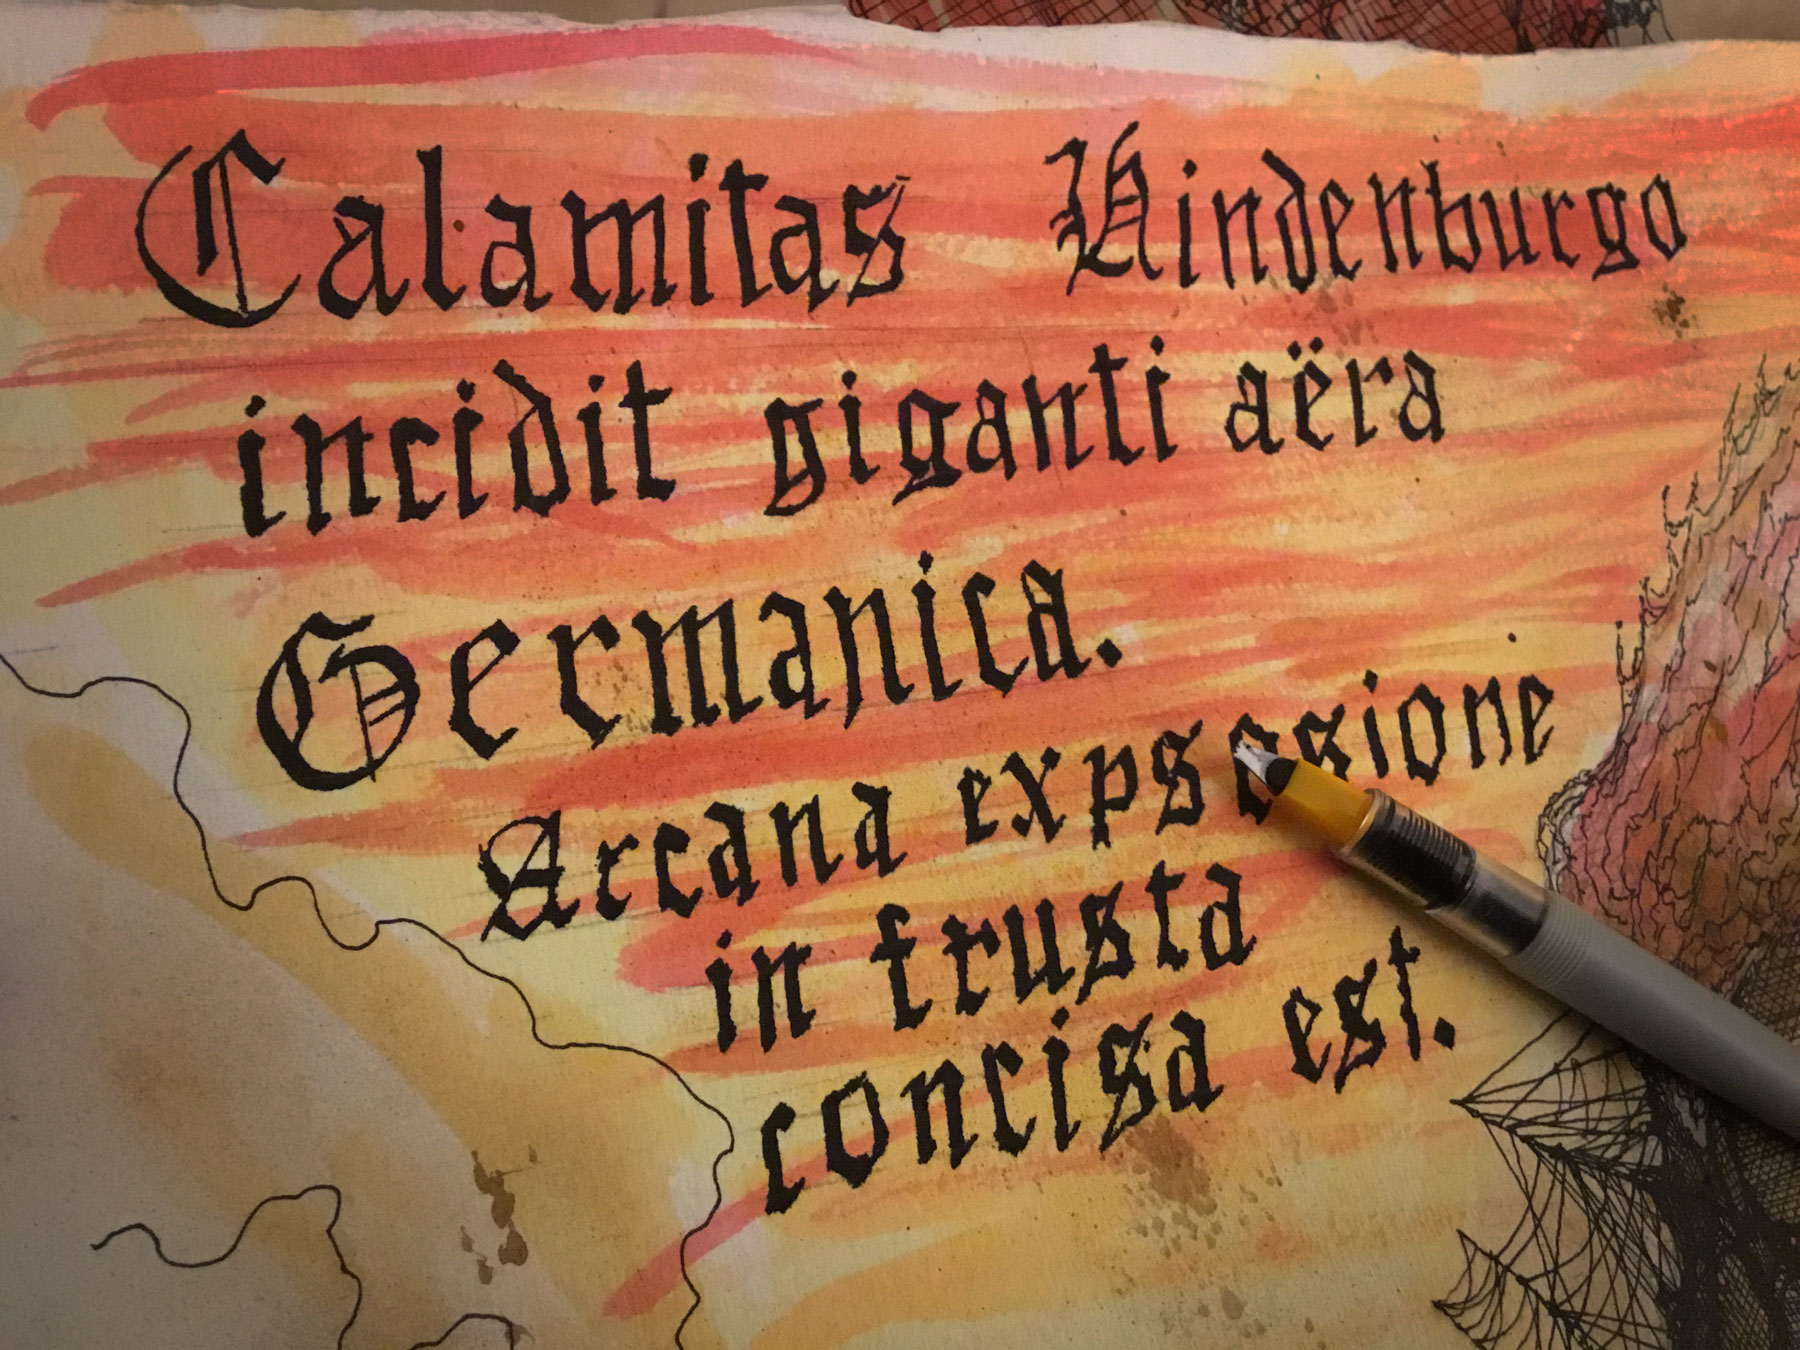 Calamitas Hindenburgo
incidit giganti aëra
Germanica.
Arcana expsosione
in frusta
concisa est.